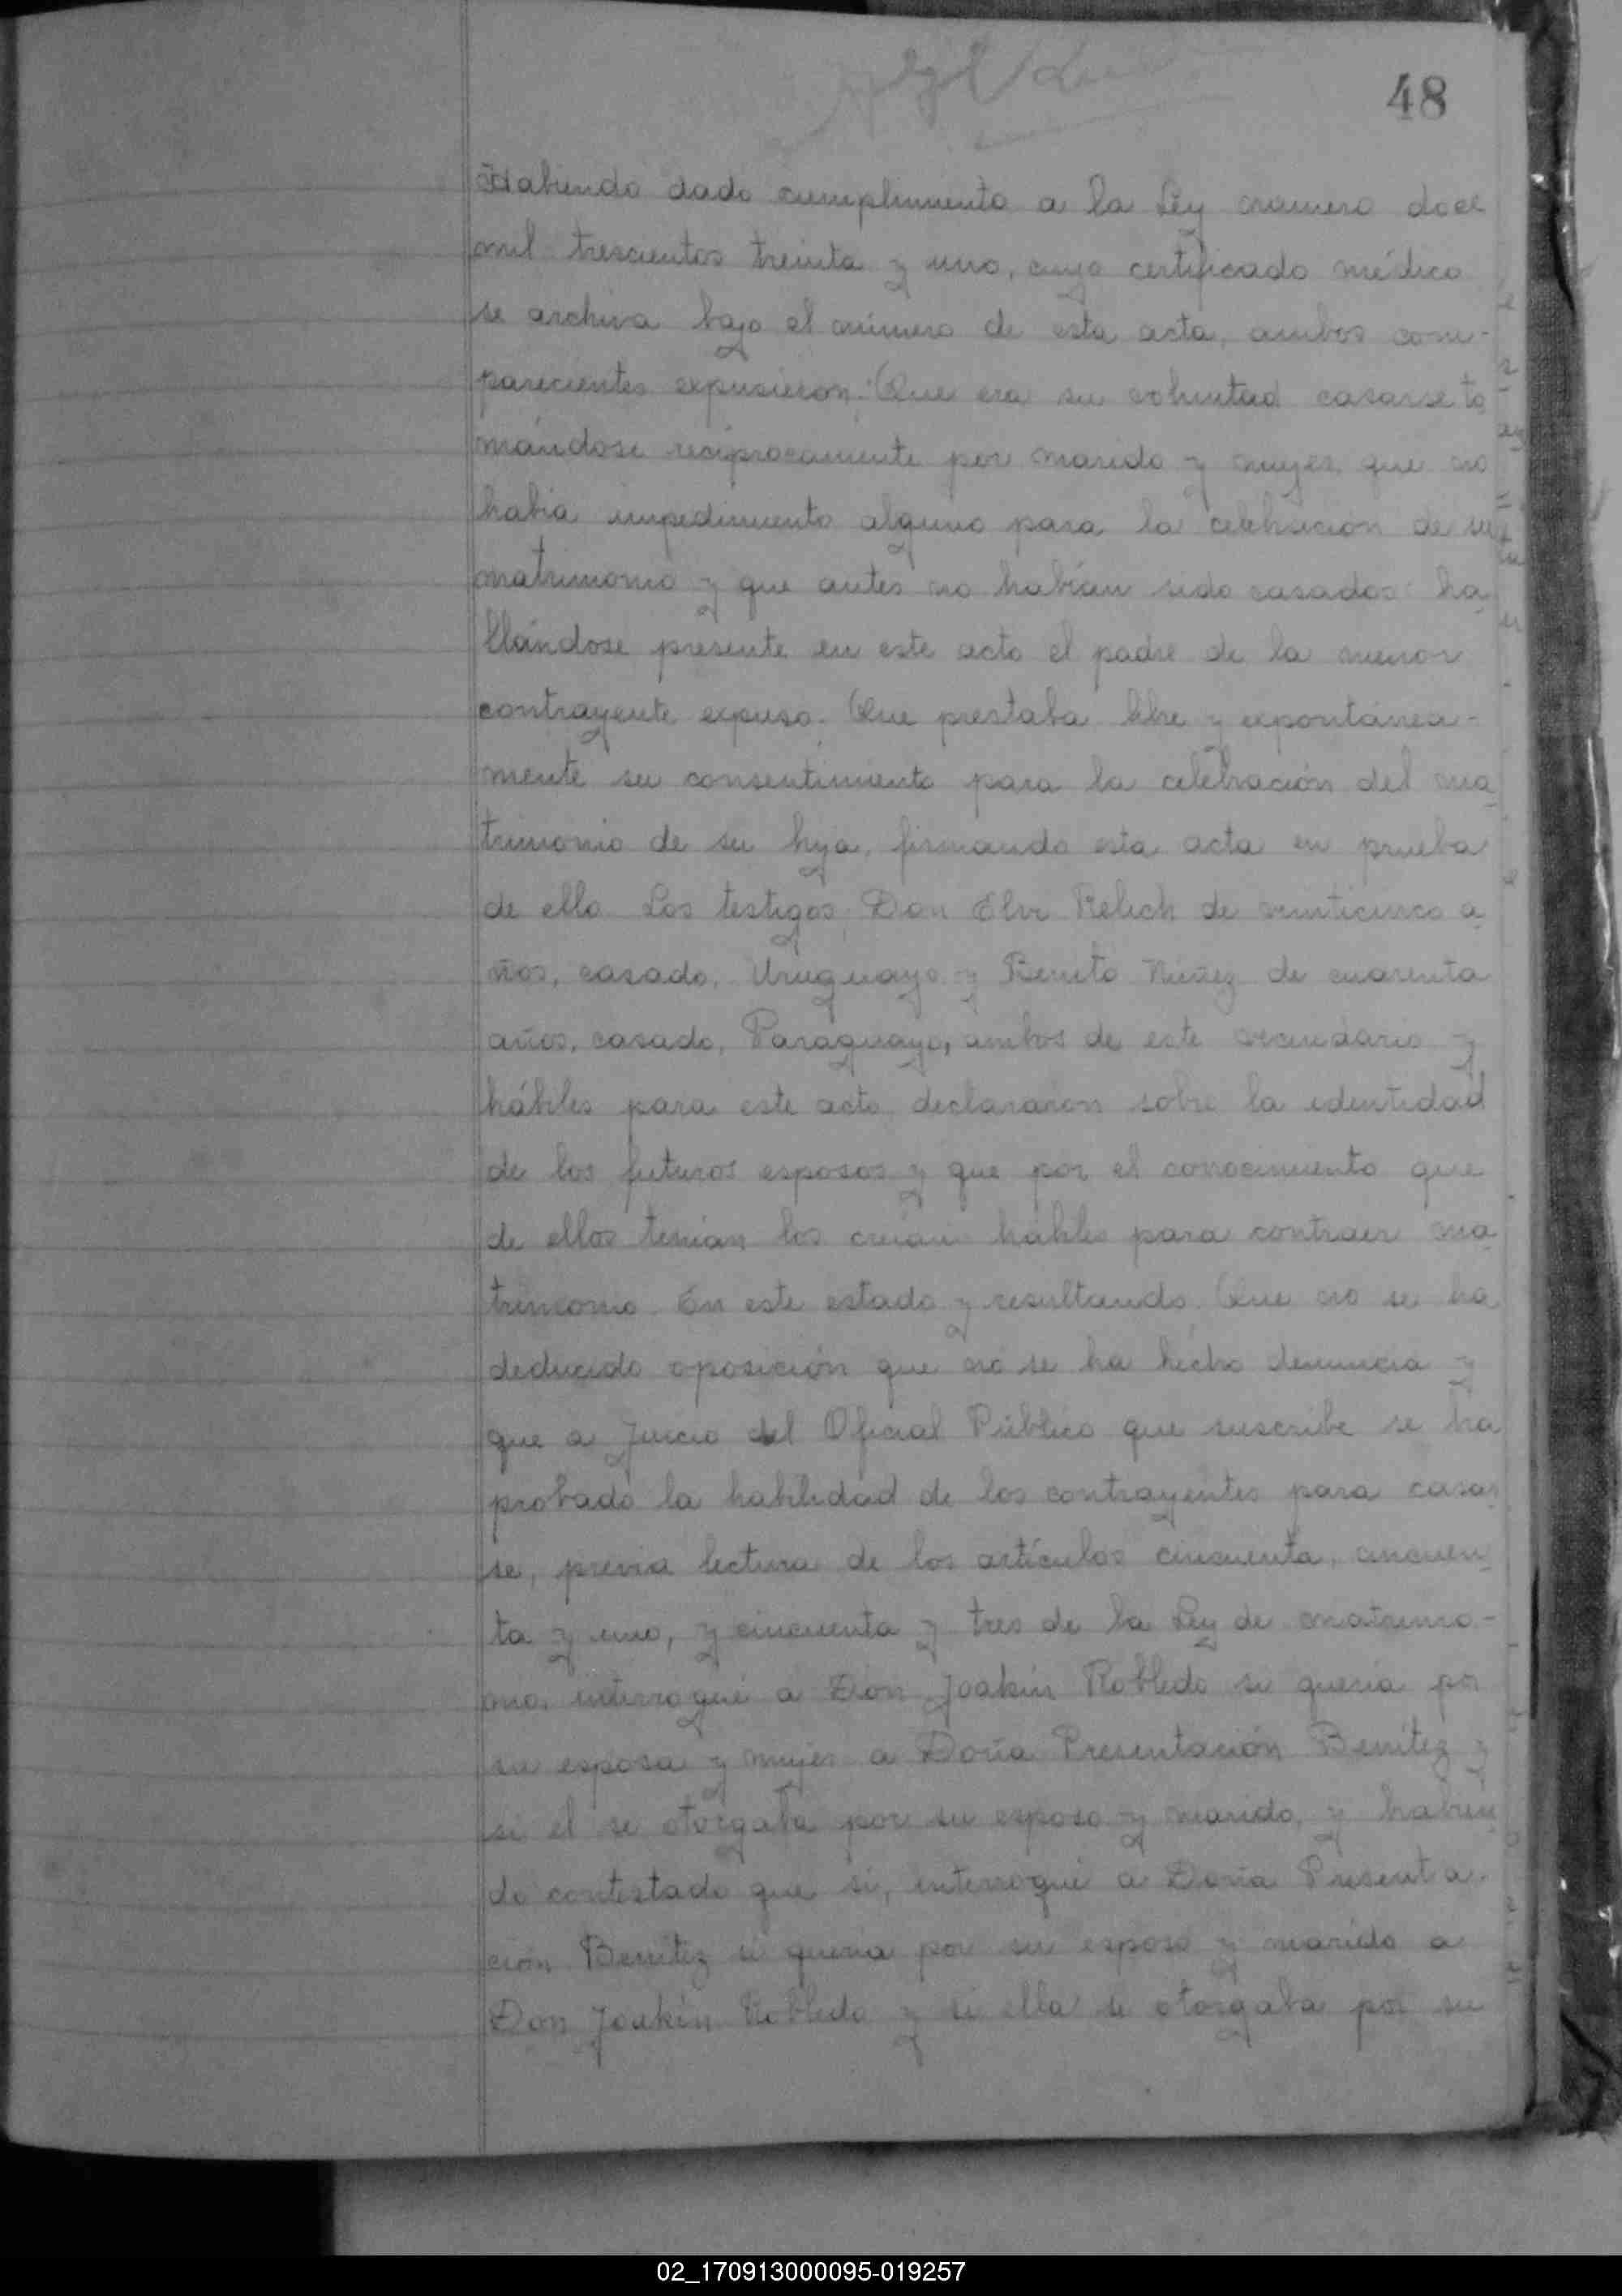 48
Habiendo dado cumplimiento a la Ley número doce
mil trescientos treinta y uno, cuyo certificado médico
se archiva bajo el número de esta acta, ambos com-
parecientes expusieron: Que era su voluntad casarse to
mándose recíprocamente por marido y mujer, que no
había impedimento alguno para la celebración de su
matrimonio y que antes no habían sido casados: ha
llándose presente en este acto el padre de la menor
contrayente expuso: Que prestaba libre y expontánea-
mente su consentimiento para la celebración del ma
trimonio de su hija, firmando esta acta en prueba
de ello. Los testigos, Don Elvi Relich de veinticinco a
ños, casado, Uruguayo y Benito Núñez de cuarenta
años, casado, Paraguayo, ambos de este vecindario y
hábiles para este acto, declararon sobre la identidad
de los futuros esposos y que por el conocimiento que
de ellos tenían los creían hábiles para contraer ma
trimonio. En este estado y resultando: Que no se ha
deducido oposición que no se ha hecho denuncia y
que a juicio del Oficial Público que suscribe se ha
probado la habilidad de los contrayentes para casar
se, previa lectura de los artículos cincuenta, cincuen
ta y uno, y cincuenta y tres de la Ley de matrimo-
nio, interrogué a Don Joakín Robledo si quería por
su esposa y mujer a Doña Presentación Benítez y
si el se otorgaba por su esposo y marido, y habien
do contestado que si, interrogué a Doña Presenta-
ción Benítez si quería por su esposo y marido a
Don Joakín Robledo y si ella se otorgaba por su
02_170913000095-019257